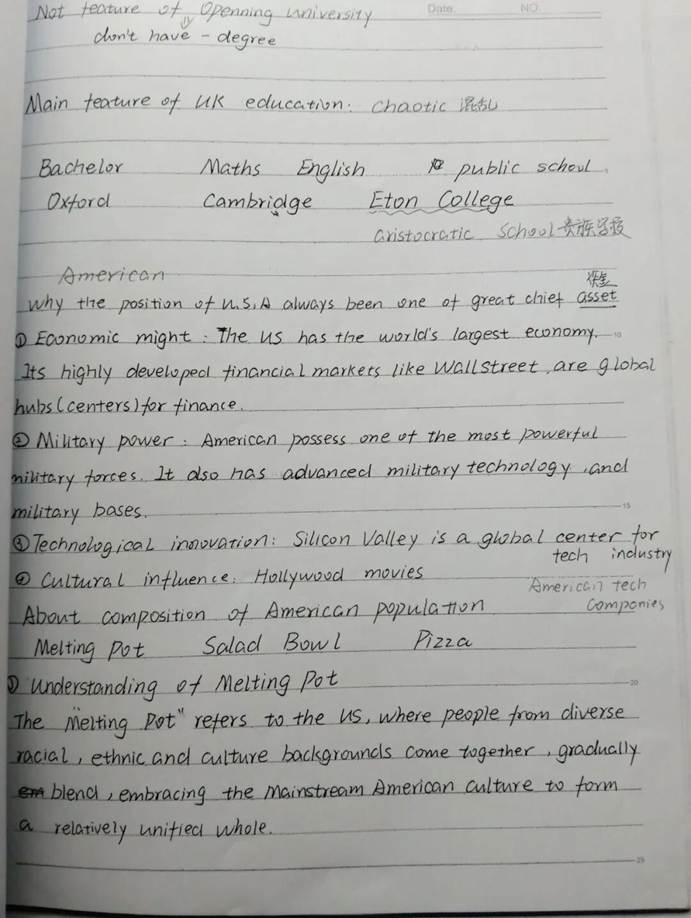 Not feature of Openning university
Date.
NO.
don't have - degree
Main feature of UK education: chaotic 混乱
Bachelor Maths English public school.
Oxford Cambridge Eton College
aristocratic school 贵族学校
American
why the position of U.S.A always been one of great chief asset
① Economic might: The US has the world's largest economy.
Its highly developed financial markets like Wall Street, are global
hubs (centers) for finance.
② Military power: American possess one of the most powerful
military forces. It also has advanced military technology, and
military bases.
③ Technological innovation: Silicon Valley is a global center for
tech industry
④ Cultural influence: Hollywood movies
American tech
companies
About composition of American population
Melting Pot Salad Bowl Pizza
① Understanding of Melting Pot
The "Melting Pot" refers to the US, where people from diverse
racial, ethnic and culture backgrounds come together, gradually
blend, embracing the mainstream American culture to form
a relatively unified whole.